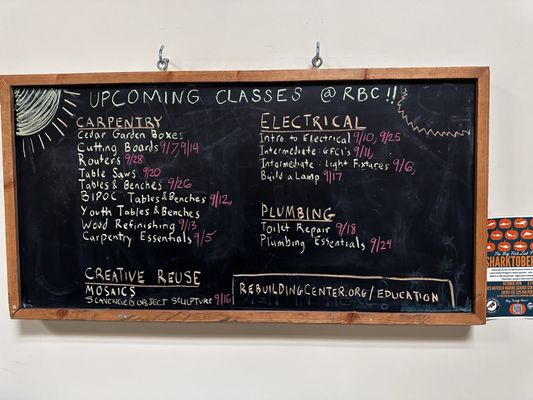 UPCOMING CLASSES @ RBC!!
CARPENTRY
Cedar Garden Boxes
Cutting Boards 9/7, 9/14
Routers 9/28
Table Saws 9/20
Tables & Benches 9/26
BIPOC Tables & Benches 9/12,
Youth Tables & Benches
Wood Refinishing 9/13
Carpentry Essentials 9/5
CREATIVE REUSE
MOSAICS
SCAVENGED OBJECT SCULPTURE 9/16
ELECTRICAL
Intro to Electrical 9/10, 9/25
Intermediate: GFCI's 9/11,
Intermediate: Light Fixtures 9/6,
Build a Lamp 9/17
PLUMBING
Toilet Repair 9/18
Plumbing Essentials 9/24
REBUILDINGCENTER.ORG/EDUCATION
SHARKTOBER